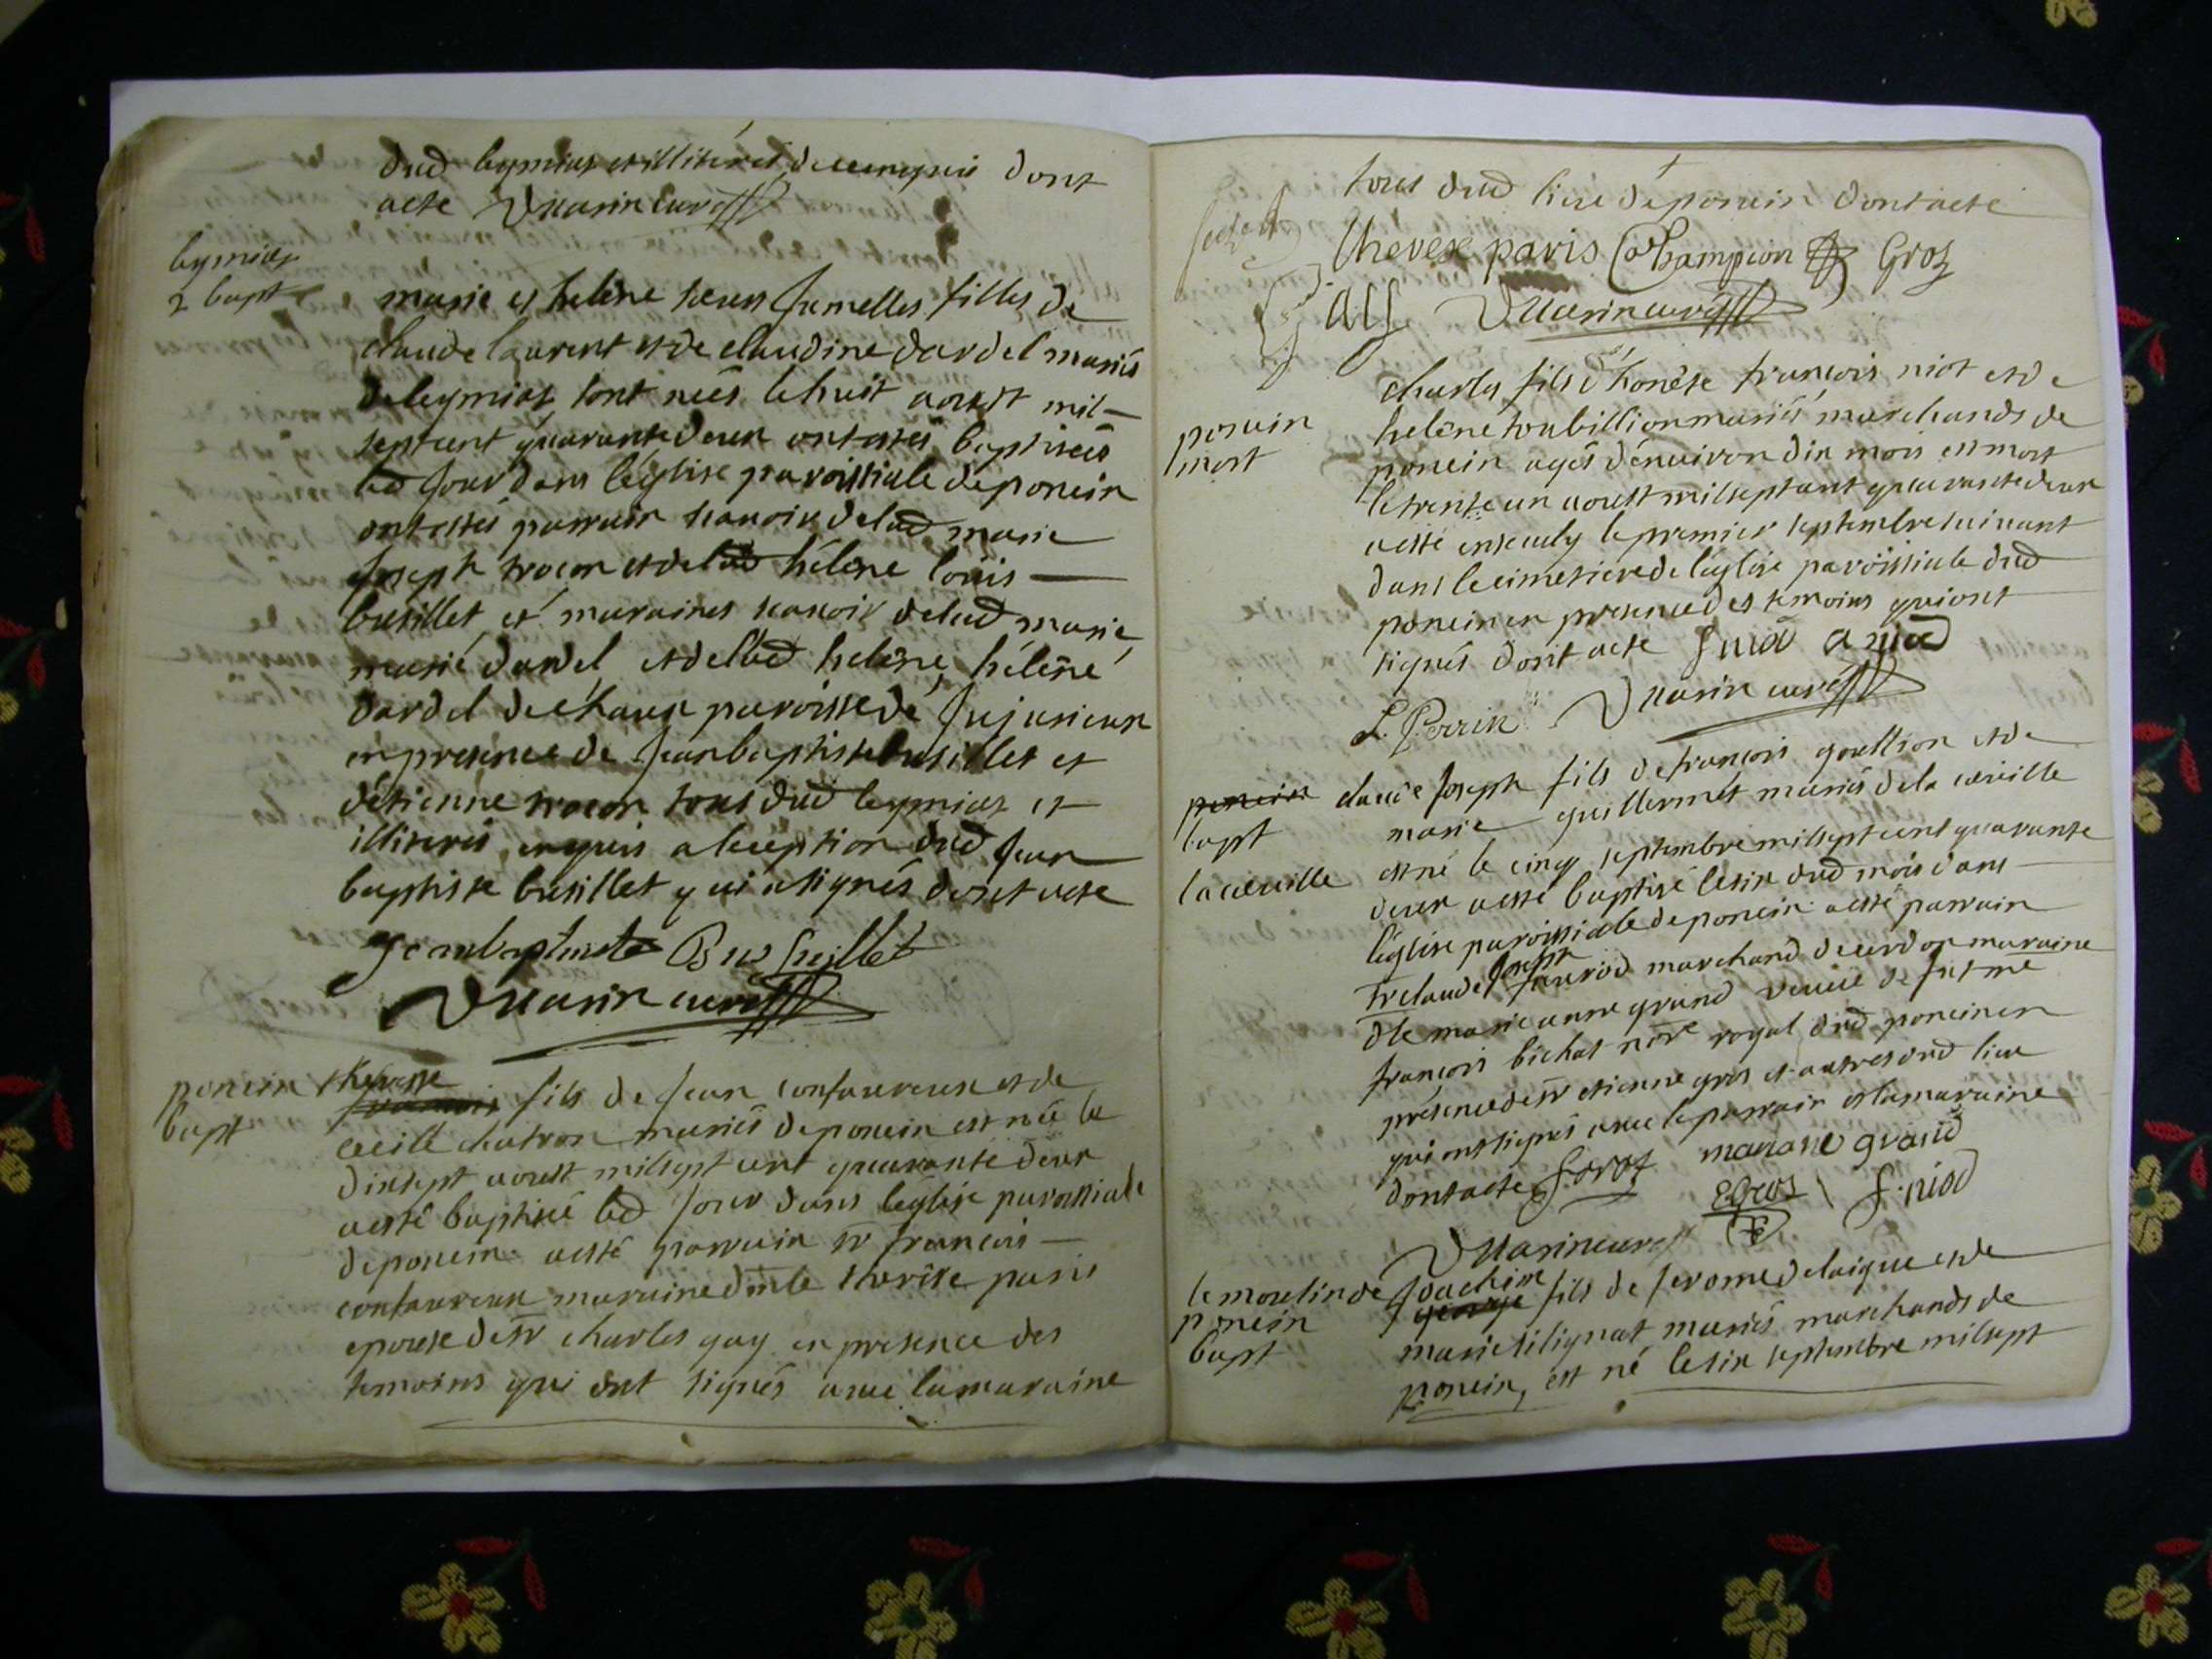 dud leymias et illiteres de ce enquis dont
acte Dmarin curé
leymias
2 bapt
marie et helène sœurs Jumelles filles de
claude laurent et de claudine dardel mariés
de leymias sont neés le huit aoust mil
sept cent quarante deux ont estés baptiseés
led Jour dans léglise paroissiale de poncin
ont estés parrain scavoir de lad marie
Joseph trocon et de lad hélène loüis
busillet et maraines scavoir de lad marie
marie dardel et de lad helène, hélène
dardel de chaux paroisse de Jujurieux
en presence de Jean baptiste busillet et
détienne trocon tous dud leymias et
illiterés enquis a léception dud Jean
baptiste busillet qui a signés dont acte
Jeanbaptiste Busuillet
Dmarin curé
poncin
bapt
theresse
francois fils de Jean confavreux et de
cecille chatron mariés de poncin est née le
dixsept aoust mil sept cent quarante deux
a esté baptiseé led Jour dans léglise paroissiale
de poncin a esté parrain sr francois
confavreux maraine dmlle therèse paris
epouse de sr charles guy en presence des
temoins qui ont signés avec la maraine
tous dud lieu de poncin dont acte
therese paris Champion Groz
Dmarin curé
poncin
mort
charles fils d'honèste francois niot et de
helène toubillion mariés marchands de
poncin agés dénviron dix mois est mort
le trente un aoust mil sept cent quarante deux
a esté ensevely le premier septembre suivant
dans le cimetiere de léglise paroissiale dud
poncin en presence des temoins qui ont
signés dont acte
L. Perrin Dmarin curé
poncin
bapt
la cueille
claude Joseph fils de francois goullion et de
marie guillermet mariés de la cueille
est né le cinq septembre mil sept cent quarante
deux a esté baptisé le six dud mois dans
léglise paroissiale de poncin a esté parrain
sr claude Joseph Jauriod marchand de cerdon maraine
dlle marie anne grand veuve de fut me
francois bichat nore royal dud poncin en
présence de sr etienne gros et autres dud lieu
qui ont signés avec le parrain et la maraine
dont acte mariane grand
Egros
Dmarin curé
le moulin de
poncin
bapt
Joachim
george fils de Jerome delaigue et de
marie silignat mariés marchands de
poncin, est né le six septembre mil sept